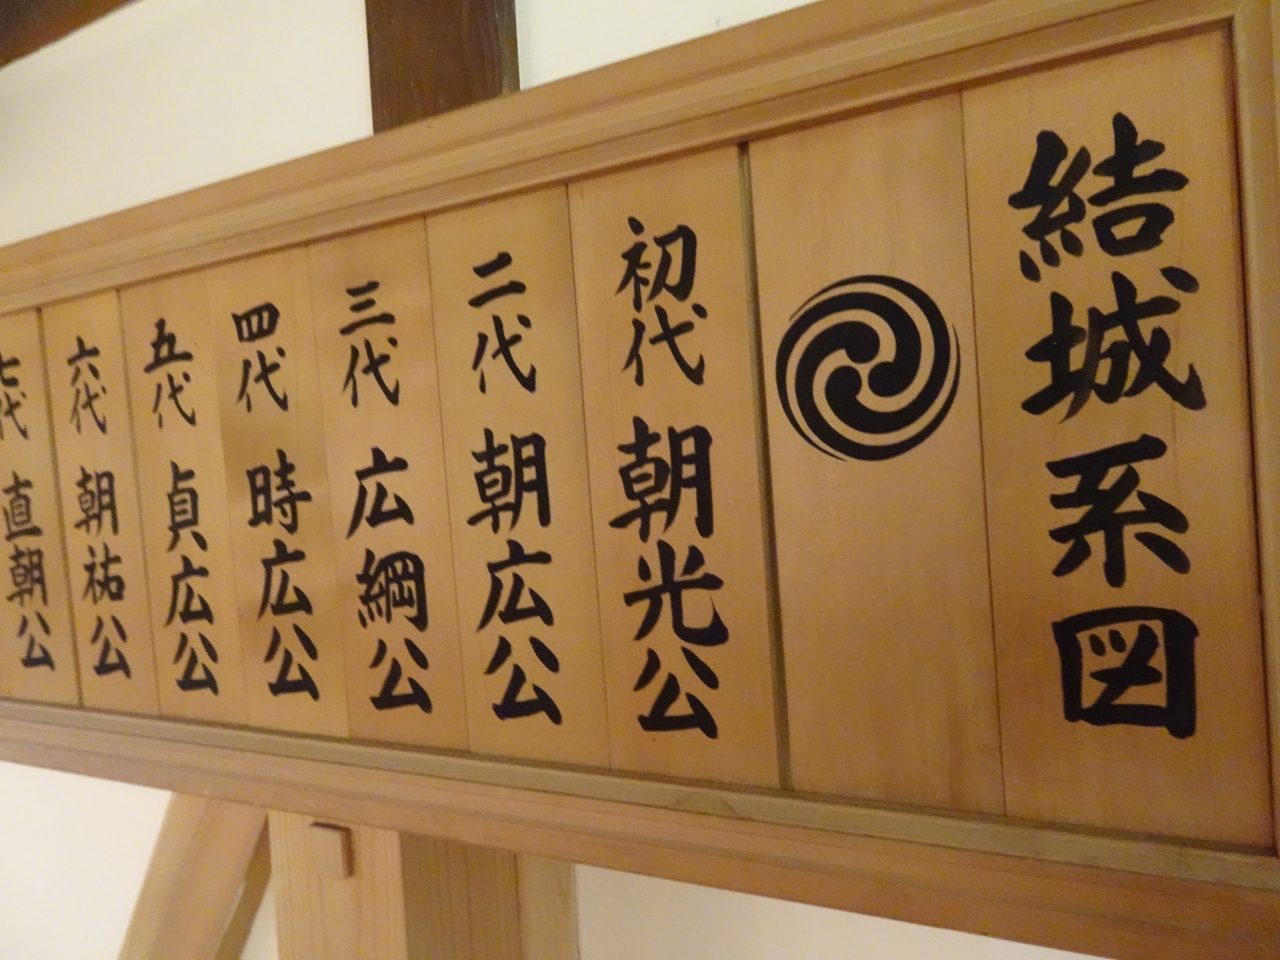 結城系図
初代 朝光公
二代 朝広公
三代 広綱公
四代 時広公
五代 貞広公
六代 朝祐公
七代 直朝公